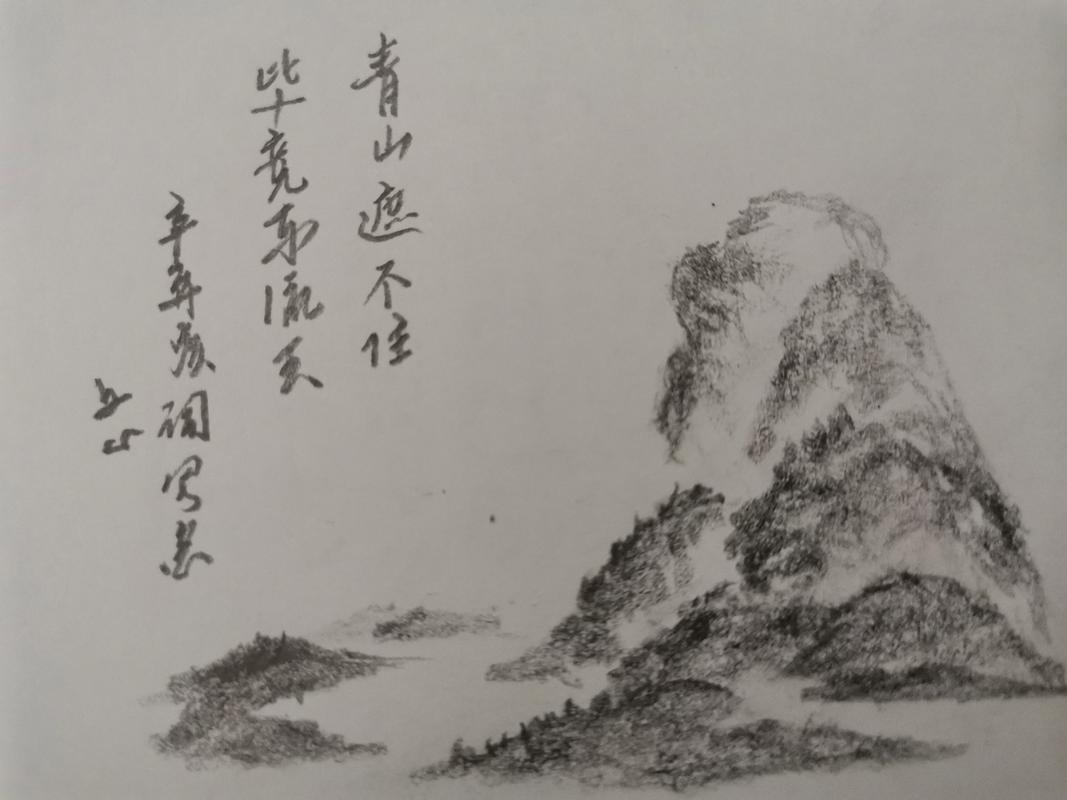 青山遮不住
毕竟东流去
辛弃疾词写意